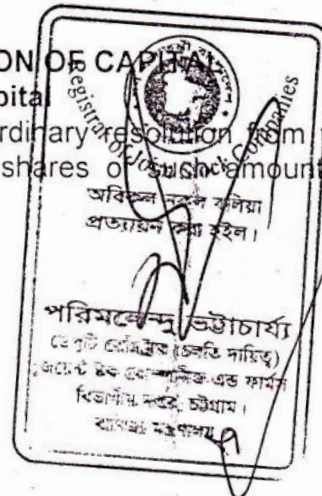 ON OF CAPITAL
pital
rdinary resolution from
shares of such amount
Registrar of Joint Stock Companies
অবিকল নকল বলিয়া
প্রত্যায়ন করা হইল।
পরিমলেন্দু ভট্টাচার্য্য
ডেপুটি রেজিষ্ট্রার (চলতি দায়িত্ব)
জয়েন্ট ষ্টক কোম্পানিজ এন্ড ফার্মস
বিভাগীয় দপ্তর, চট্টগ্রাম।
বাণিজ্য মন্ত্রণালয়